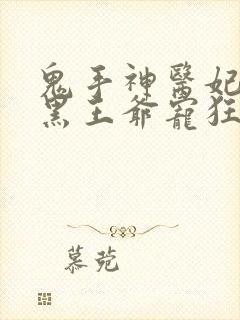 鬼手神醫妃
黑王爺寵狂
慕蒬